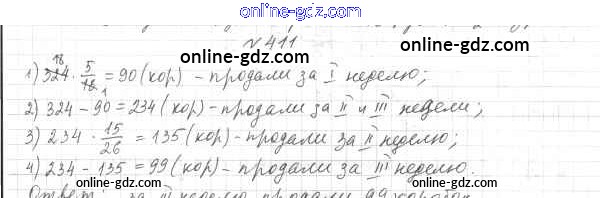 online-gdz.com
№411
online-gdz.com
1) 324 · 5/18 = 90 (кор) - продали за I неделю;
18
1
online-gdz.com
2) 324 - 90 = 234 (кор) - продали за II и III недели;
3) 234 · 15/26 = 135 (кор) - продали за II неделю;
online-gdz.com
4) 234 - 135 = 99 (кор) - продали за III неделю.
online-gdz.com
online-gdz.com
Ответ: за III неделю продали 99 коробок